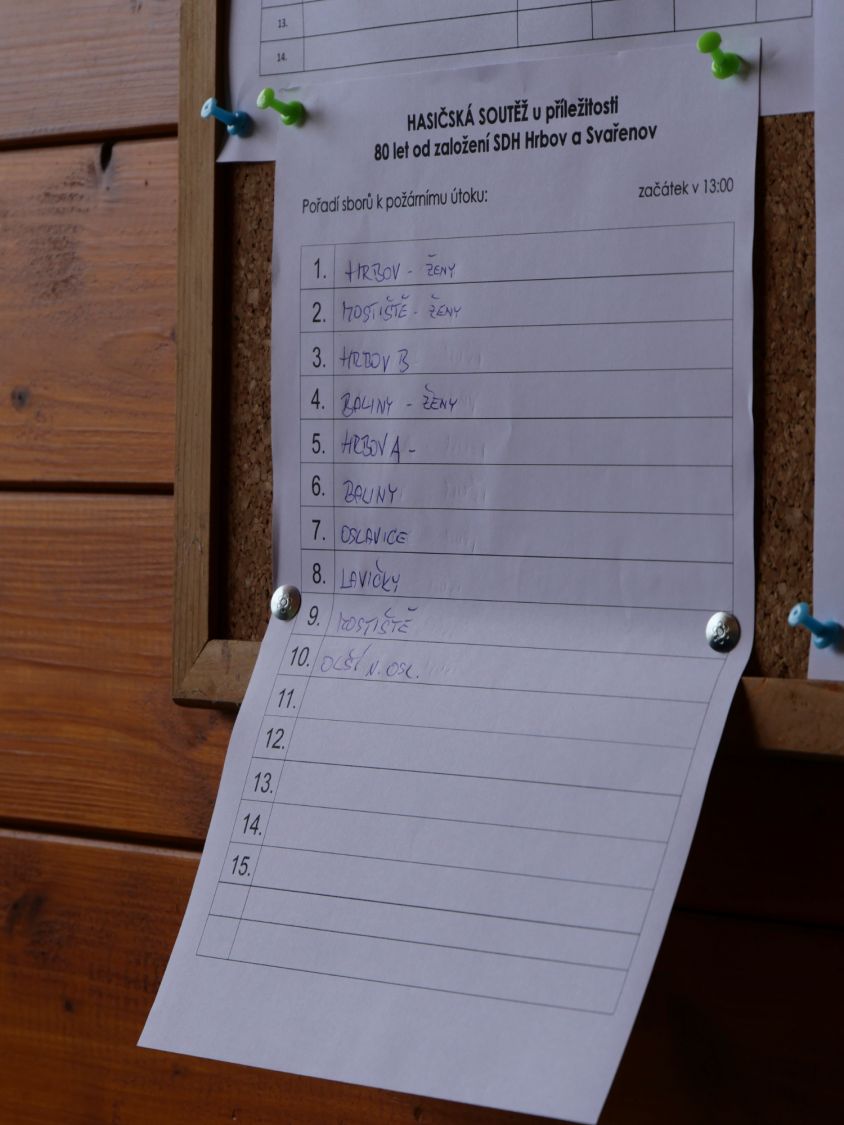 13.
14.
HASIČSKÁ SOUTĚŽ u příležitosti
80 let od založení SDH Hrbov a Svařenov
Pořadí sborů k požárnímu útoku: začátek v 13:00
1. HRBOV - ŽENY
2. MOSTIŠTĚ - ŽENY
3. HRBOV B
4. BALINY - ŽENY
5. HRBOV A -
6. BALINY
7. OSLAVICE
8. LAVIČKY
9. MOSTIŠTĚ
10. OLŠÍ N. OSL.
11.
12.
13.
14.
15.